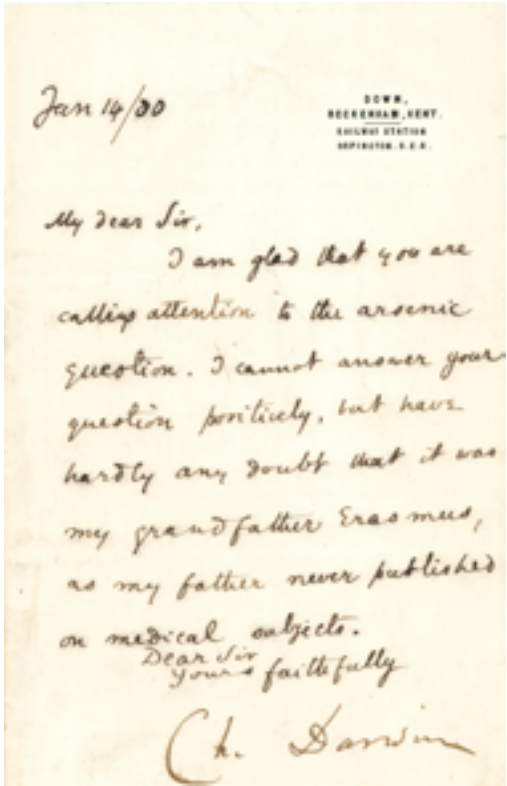 Jan 14/80
DOWN,
BECKENHAM, KENT.
RAILWAY STATION
ORPINGTON. S.E.R.
My dear Sir,
I am glad that you are
calling attention to the arsenic
question. I cannot answer your
question positively, but have
hardly any doubt that it was
my grandfather Erasmus,
as my father never published
on medical subjects.
Dear Sir
Yours faithfully
Ch. Darwin